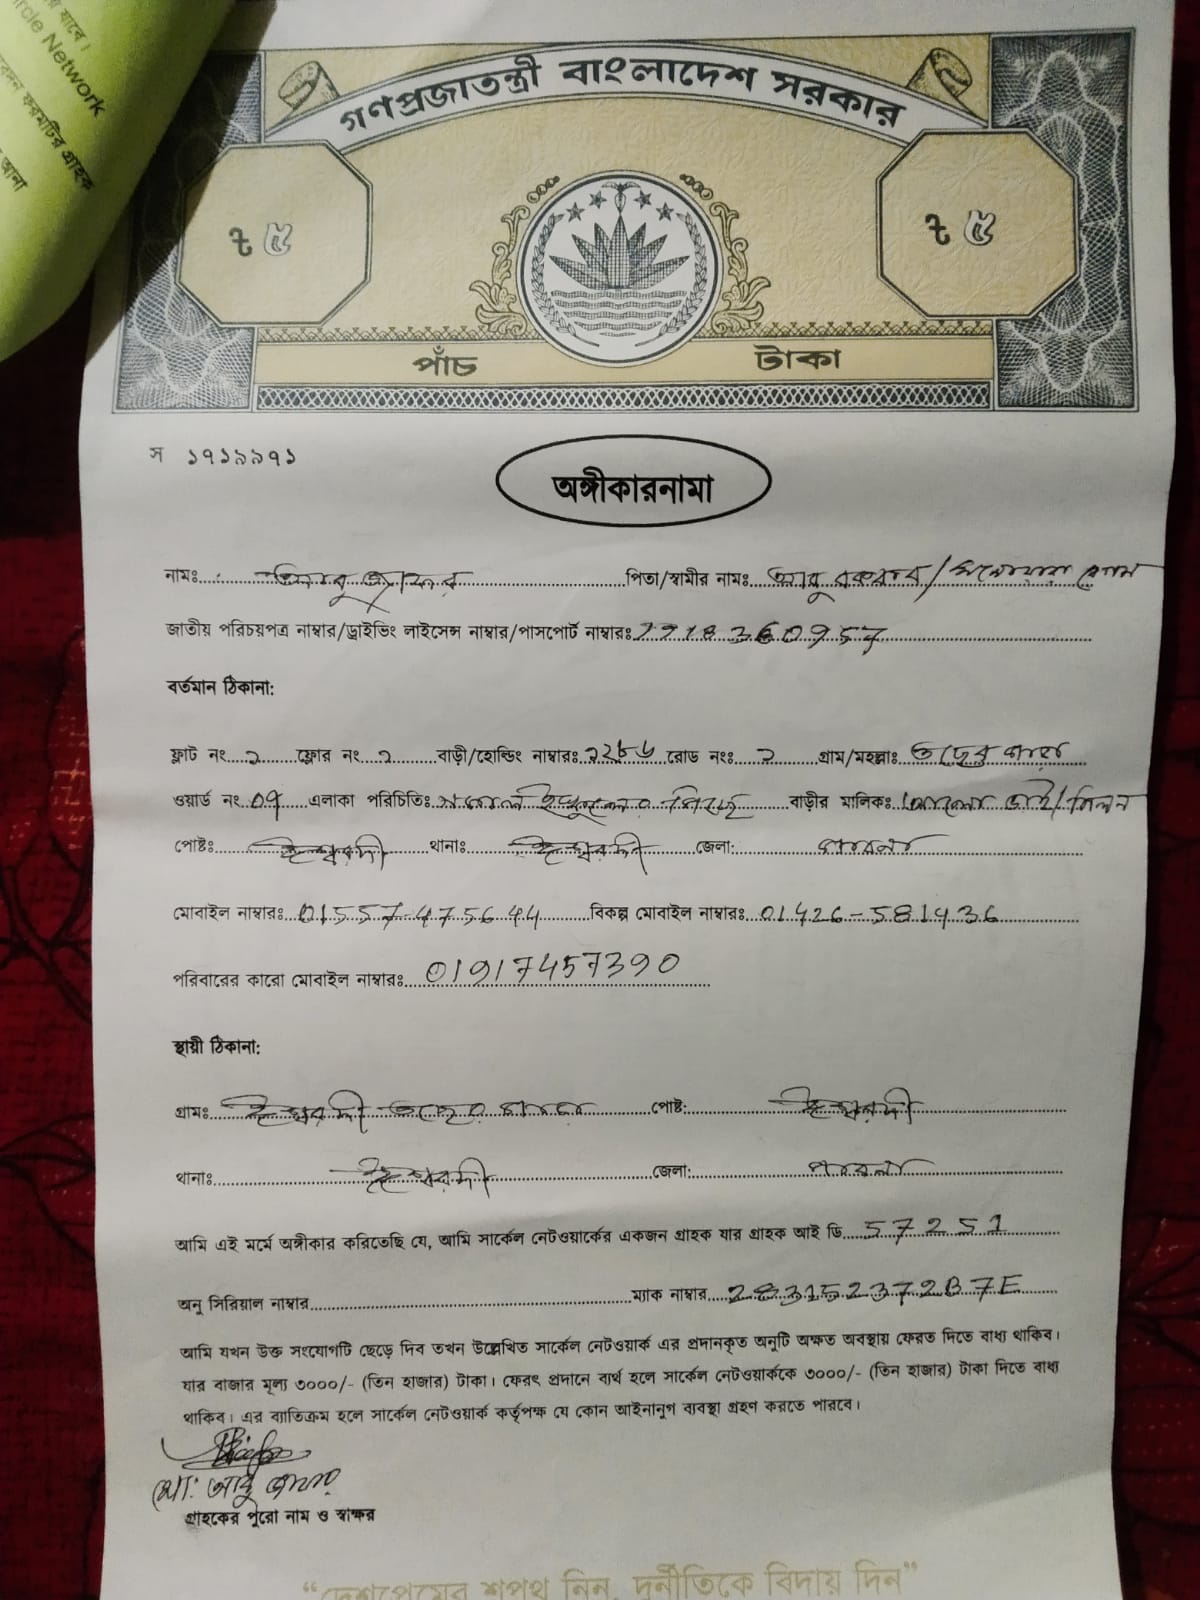 rcle Network
গণপ্রজাতন্ত্রী বাংলাদেশ সরকার
৳ ৫ ৳ ৫
পাঁচ টাকা
স ১৭১৯৯৭১
অঙ্গীকারনামা
নামঃ আবু জাফর পিতা/স্বামীর নামঃ আবু বকরার/মনোয়ারা বেগম
জাতীয় পরিচয়পত্র নাম্বার/ড্রাইভিং লাইসেন্স নাম্বার/পাসপোর্ট নাম্বারঃ
বর্তমান ঠিকানা:
ফ্লাট নং ফ্লোর নং বাড়ী/হোল্ডিং নাম্বারঃ রোড নংঃ গ্রাম/মহল্লাঃ
ওয়ার্ড নং 09 এলাকা পরিচিতিঃ বাড়ীর মালিকঃ
পোষ্টঃ ঈশ্বরদী থানাঃ ঈশ্বরদী জেলা: পাবনা
মোবাইল নাম্বারঃ 01557-475644 বিকল্প মোবাইল নাম্বারঃ
পরিবারের কারো মোবাইল নাম্বারঃ 01917457390
স্থায়ী ঠিকানা:
গ্রামঃ ঈশ্বরদী পোষ্ট: ঈশ্বরদী
থানাঃ ঈশ্বরদী জেলা: পাবনা
আমি এই মর্মে অঙ্গীকার করিতেছি যে, আমি সার্কেল নেটওয়ার্কের একজন গ্রাহক যার গ্রাহক আই ডি 57251
অনু সিরিয়াল নাম্বার ম্যাক নাম্বার 283152372B7E
আমি যখন উক্ত সংযোগটি ছেড়ে দিব তখন উল্লেখিত সার্কেল নেটওয়ার্ক এর প্রদানকৃত অনুটি অক্ষত অবস্থায় ফেরত দিতে বাধ্য থাকিব।
যার বাজার মূল্য ৩০০০/- (তিন হাজার) টাকা। ফেরৎ প্রদানে ব্যর্থ হলে সার্কেল নেটওয়ার্ককে ৩০০০/- (তিন হাজার) টাকা দিতে বাধ্য
থাকিব। এর ব্যাতিক্রম হলে সার্কেল নেটওয়ার্ক কর্তৃপক্ষ যে কোন আইনানুগ ব্যবস্থা গ্রহণ করতে পারবে।
মো: আবু জাফর
গ্রাহকের পুরো নাম ও স্বাক্ষর
“দেশপ্রেমের শপথ নিন, দুর্নীতিকে বিদায় দিন”